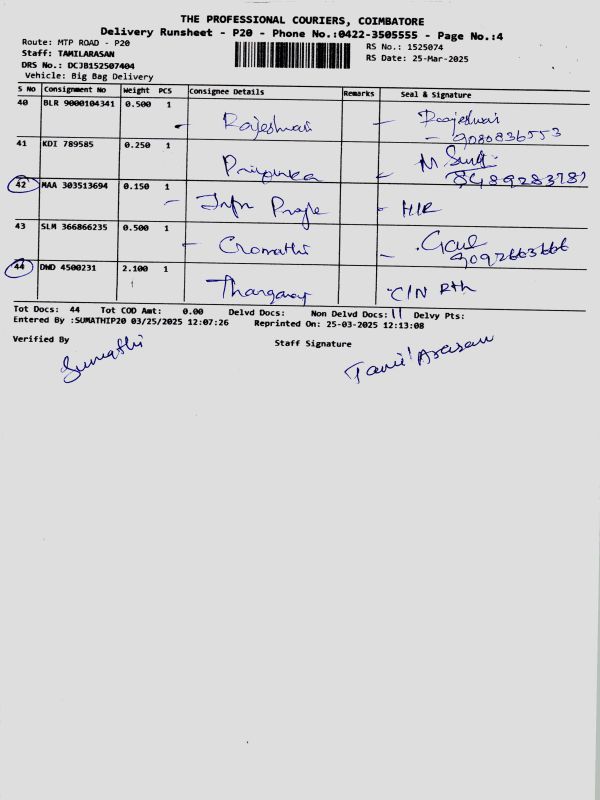 THE PROFESSIONAL COURIERS, COIMBATORE
Delivery Runsheet - P20 - Phone No.:0422-3505555 - Page No.:4
Route: MTP ROAD - P20
RS No.: 1525074
Staff: TAMILARASAN
RS Date: 25-Mar-2025
DRS No.: DCJB152507404
Vehicle: Big Bag Delivery
S No Consignment No Weight PCS Consignee Details Remarks Seal & Signature
40 BLR 9000104341 0.500 1 Rajeshwari Raajeshwari
9080836553
41 KDI 789585 0.250 1 Priyanka
8489283781
42 MAA 303513694 0.150 1
43 SLM 366866235 0.500 1
9092663666
44 DWD 4500231 2.100 1 C/N Rth
Tot Docs: 44 Tot COD Amt: 0.00 Delvd Docs: Non Delvd Docs: 11 Delvy Pts:
Entered By :SUMATHIP20 03/25/2025 12:07:26 Reprinted On: 25-03-2025 12:13:08
Verified By Staff Signature
Sumathi Tamil Arasan